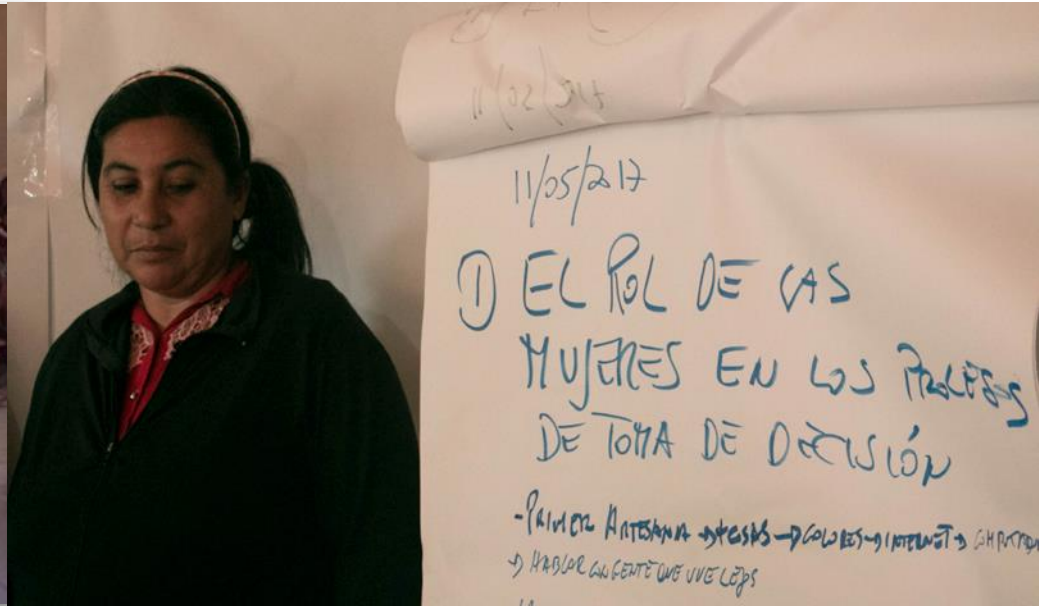 11/02/2017
11/05/2017
1) EL ROL DE LAS
MUJERES EN LOS PROCESOS
DE TOMA DE DECISIÓN
- PRIMER ARTESANIA → COSAS → COLORES → INTERNET →
→ HABLAR CON GENTE QUE VIVE LEJOS